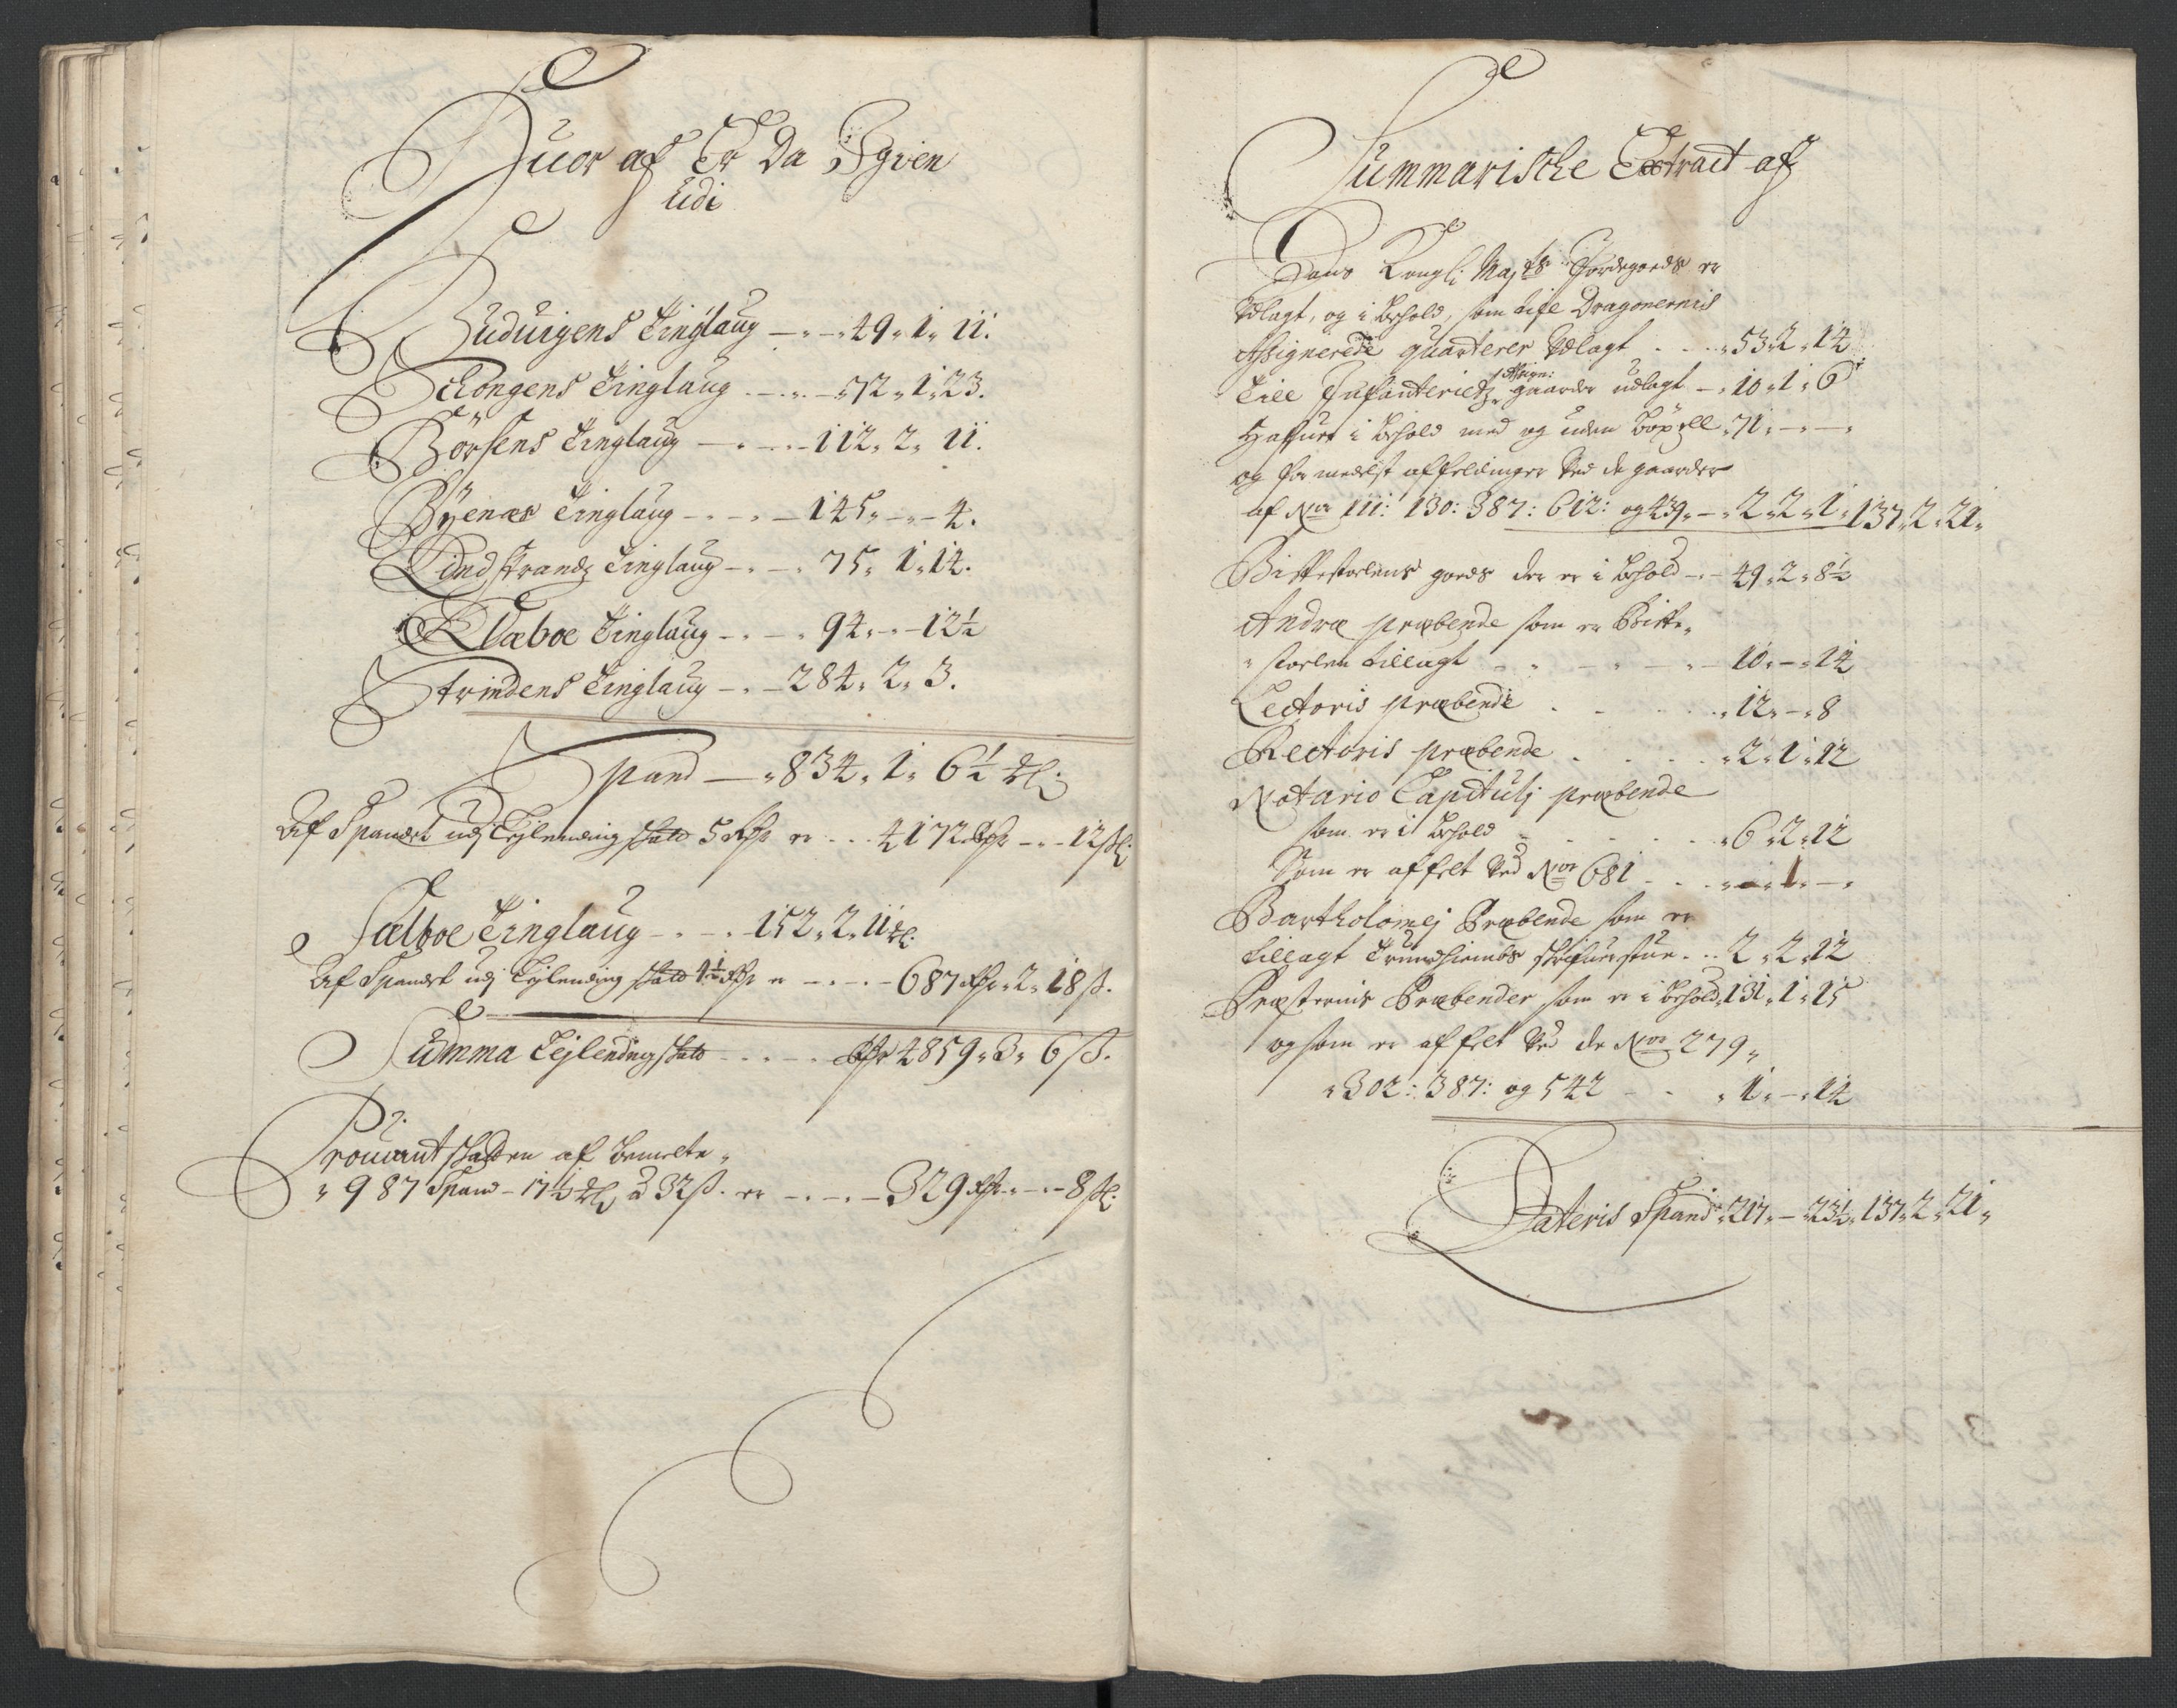 Huor af Er Da Igien
Udi
Buduigens Tinglaug — 49 " 1 " 11.
Schongens Tinglaug — 72 " 1 " 23.
Börsens Tinglaug — 112 " 2 " 11.
Byenæs Tinglaug — 145 " — " 4.
Lindstrandz Tinglaug — 75 " 1 " 14.
Klæboe Tinglaug — 94 " — " 12½
Strindens Tinglaug — 284 " 2 " 3.
Spand — 834 " 1 " 6½
Af Spandet udj Leylending skatt 5 er — 4172 — 12
Sælboe Tinglaug — 152 " 2 " 11
Af Spandet udj Leylending skatt 4½ er — 687 " 2 " 18 ß.
Summa Lejlending skatt — 4859 " 3 " 6 ß.
Prouiant skatten af bemelte
987 Spand – 17½ à 32 ß. er — 329 — 8
Summarische Extract af
Hans Kongl: Maj:ts Jordegods er
Udlagt, og i behold, som till Dragonernis
Assignerede quarterer Udlagt — 53 " 2 " 14
Till Infanteriets Assign: gaarder udlagt — 10 " 1 " 6
Hafuer i behold med og uden böxell 71 " — " —
og formedelst affeldinger Ved de gaarder
af No 111: 130: 387: 612: og 439 — 2 " 2 " 1 " 137 " 2 " 21
Bispestoelens goeds der er i behold — 49 " 2 " 8½
Andræ præbende som er Bispe
stoelen tillagt — 10 " — " 14
Lectoris præbende — 12 " — " 8
Rectoris præbende — 2 " 1 " 12
Notario Capitulj præbende
som er i behold — 6 " 2 " 12
Som er affelt Ved No 681 — " 1 " —
Bartholomej Præbende som er
tillagt Trundhiembs — 2 " 2 " 12
Præsternis Præbender som er i behold 131 " 1 " 15
og som er affelt Ved de No 279
302: 387: og 542 — 1 " — " 14
Lateris Spand 217 " — " 23½ " 137 " 2 " 21